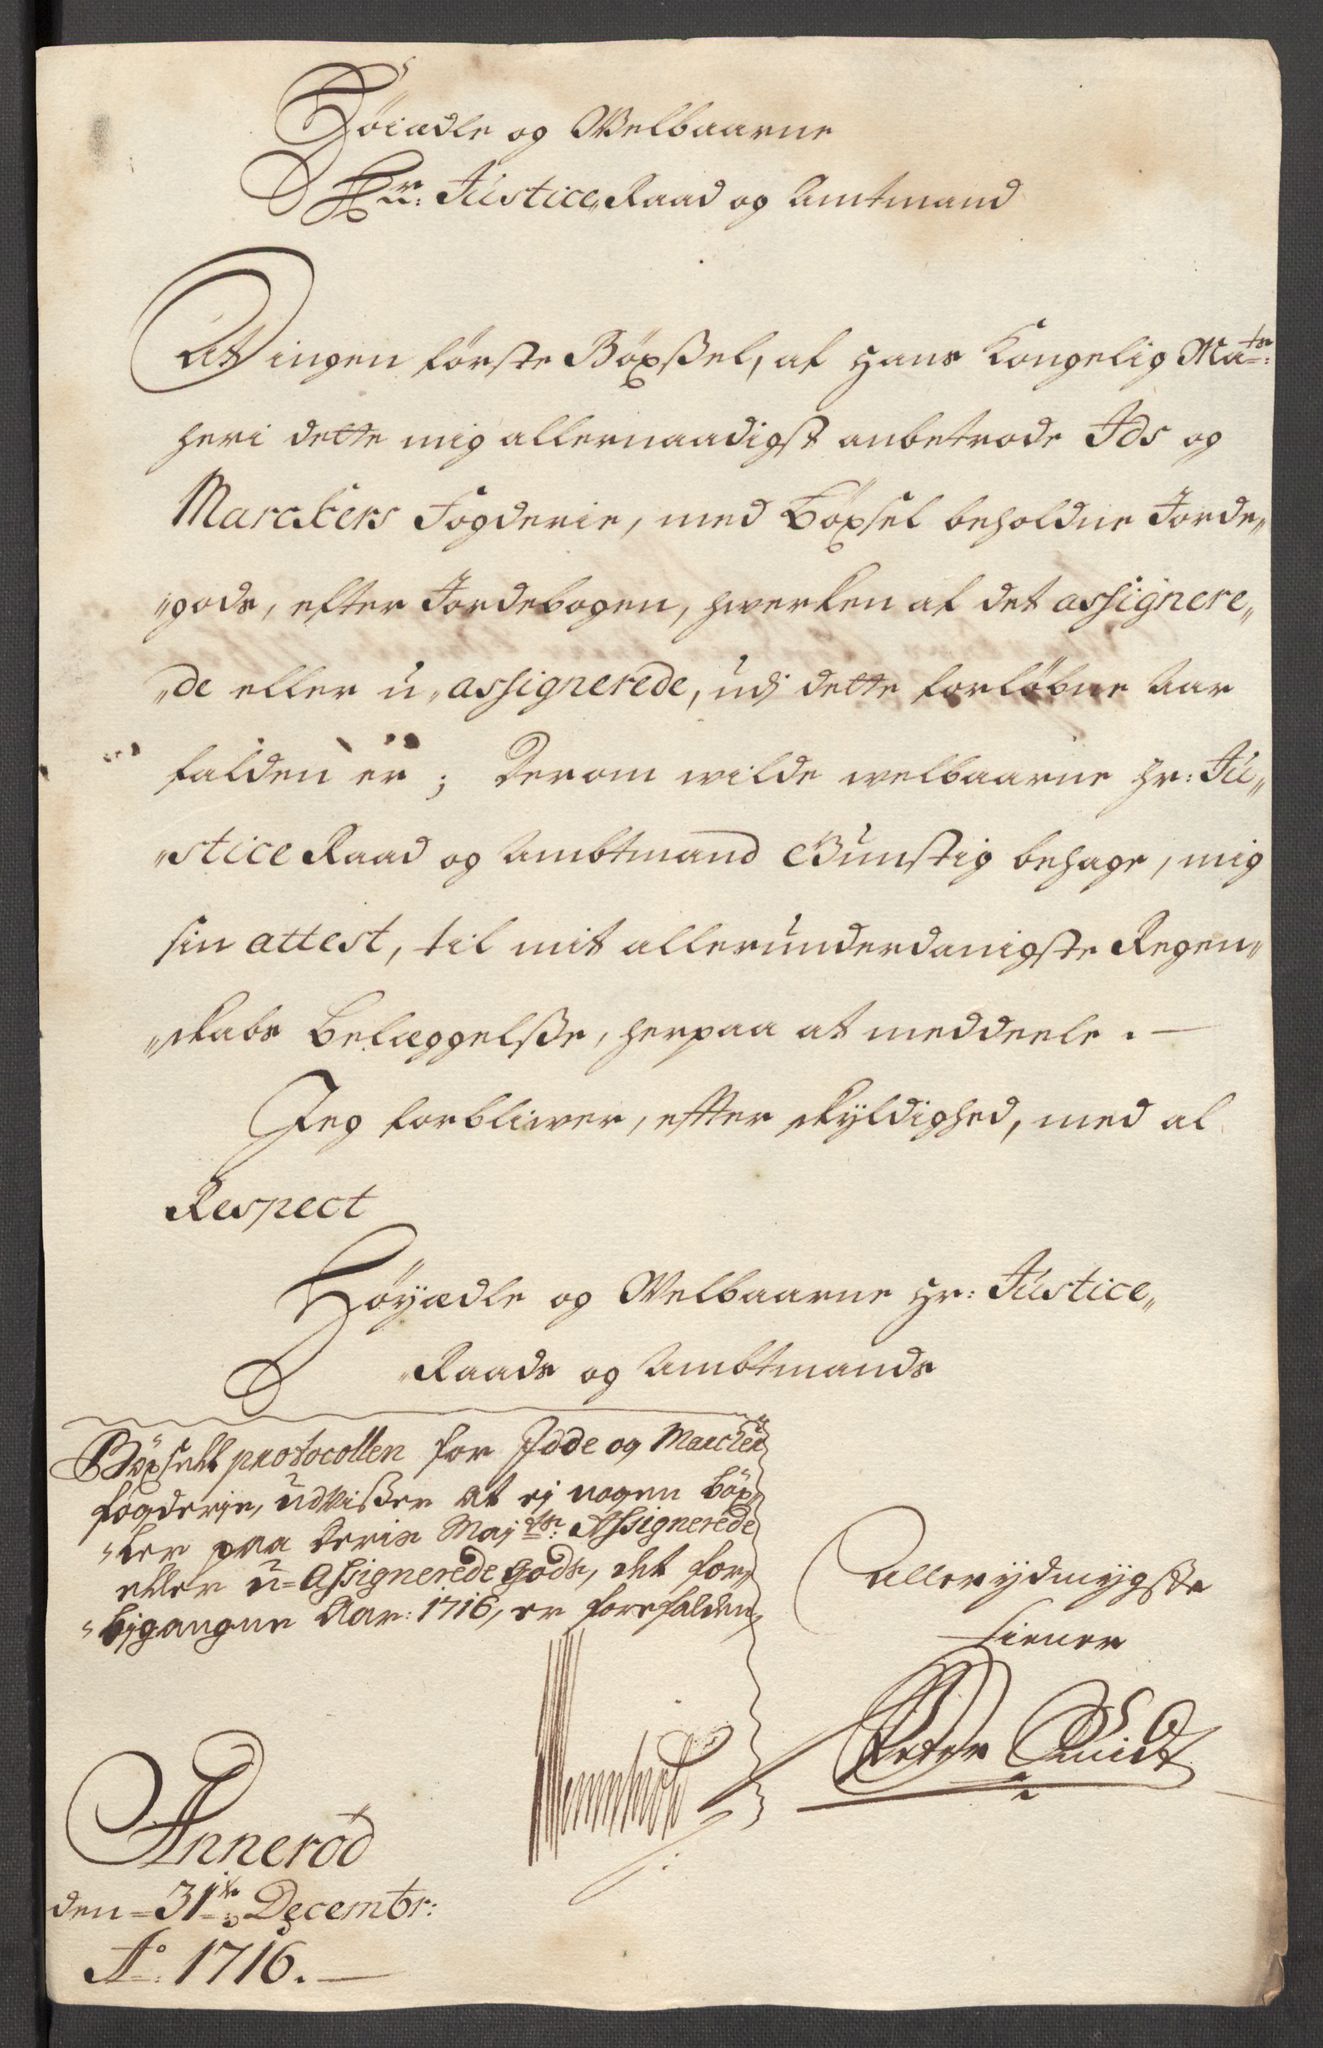 Höiædle og Welbaarne
Hr: Justice Raad og Amtmand
At ingen første Böxßel, af Hans Kongelig Mats:
heri dette mig allernaadigst anbetrode Ids og
Marckers Fogderie, med Böxsel beholdne Jorde„
„gods, efter Jordebogen, hwerken af det assignere„
„de eller u„assignerede, udj dette forløbne Aar
falden er; Derom wilde welbaarne Hr: Ju„
„stice Raad og Ambtmand Gunstig behage, mig
sin attest, til mit allerunderdanigste Regen„
„skabs Belæggelsse, herpaa at meddeele. —
Jeg forbliwer, efter skyldighed, med al
Respect
Höÿædle og Welbaarne Hr: Justice„
„Raads og Ambtmands
Böxsell protocollen for Idde og Marcker
fogderie, udvißer at ej nogen böx„
„ler paa Deris Majts: Assignerede
eller u=Assignerede gods, det for„
„bigangne Aar: 1716, er forefalden,
Allerÿdmÿgste
Tiener
Peter Smidt
Annerød
den 31te: Decembr:
Ao: 1716. —